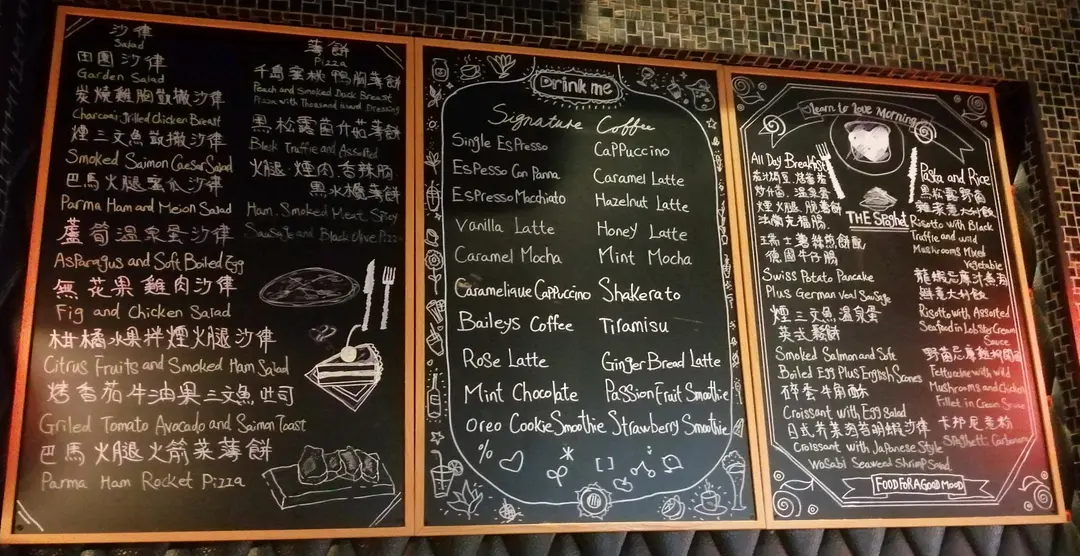 沙律
Salad
田園沙律
Garden Salad
炭燒雞胸凱撒沙律
Charcoal Grilled Chicken Breast
煙三文魚凱撒沙律
Smoked Salmon Caesar Salad
巴馬火腿蜜瓜沙律
Parma Ham and Melon Salad
蘆筍溫泉蛋沙律
Asparagus and Soft Boiled Egg
無花果雞肉沙律
Fig and Chicken Salad
柑橘水果拌煙火腿沙律
Citrus Fruits and Smoked Ham Salad
烤香茄牛油果三文魚吐司
Griled Tomato Avocado and Salmon Toast
巴馬火腿火箭菜薄餅
Parma Ham Rocket Pizza
薄餅
Pizza
千島蜜桃鴨胸薄餅
Peach and Smoked Duck Breast
Pizza with Thousand Island Dressing
黑松露菌什菇薄餅
Black Truffle and Assorted
火腿·煙肉·香辣腸
黑水欖薄餅
Ham, Smoked Meat, Spicy
Sausage and Black Olive Pizza
Drink me
Signature Coffee
Single Espresso
Espresso Con Panna
Espresso Macchiato
Vanilla Latte
Caramel Mocha
Caramelique Cappuccino
Baileys Coffee
Rose Latte
Mint Chocolate
Oreo Cookie Smoothie
Cappuccino
Caramel Latte
Hazelnut Latte
Honey Latte
Mint Mocha
Shakerato
Tiramisu
GingerBread Latte
Passion Fruit Smoothie
Strawberry Smoothie
%
Learn to love Morning
All Day Breakfast
炒什菌，溫泉蛋
煙火腿，脆薯餅
法蘭克福腸
瑞士薯絲煎餅配
德國牛仔腸
Swiss Potato Pancake
Plus German Veal Sausage
煙三文魚溫泉蛋
英式鬆餅
Smoked Salmon and Soft
Boiled Egg Plus English Scones
碎蛋牛角酥
Croissant with Egg Salad
Croissant with Japanese Style
Wasabi Seaweed Shrimp Salad
THE Spaghet
Pasta and Rice
黑松露野菌
雜菜意大利飯
Risotto with Black
Truffle and wild
Mushrooms Mixed
Vegetable
龍蝦忌廉汁海鮮
Risotto with Assorted
Seafood in Lobster Cream
Sauce
Fettuccine with wild
Mushrooms and Chicken
Fillet in Cream Sauce
卡邦尼意粉
Spaghetti Carbonara
FOOD FOR A GOOD MOOD